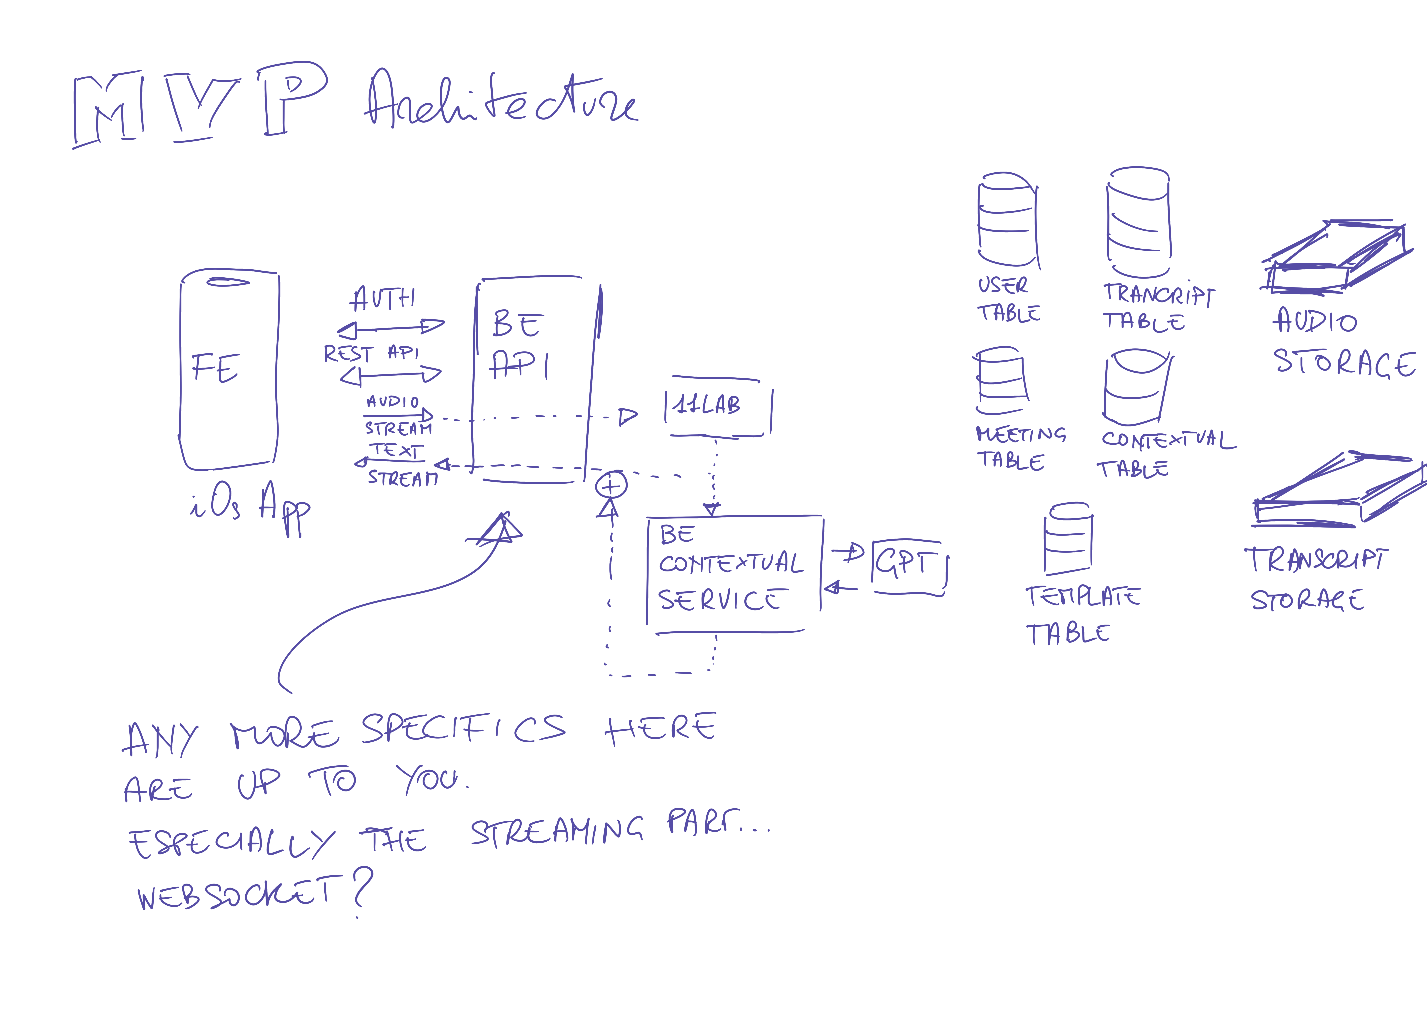 MVP Architecture
FE
iOs App
AUTH
REST API
AUDIO
STREAM
TEXT
STREAM
BE
API
11LAB
+
BE
CONTEXTUAL
SERVICE
GPT
USER
TABLE
TRANCRIPT
TABLE
AUDIO
STORAGE
MEETING
TABLE
CONTEXTUAL
TABLE
TEMPLATE
TABLE
TRANSCRIPT
STORAGE
ANY MORE SPECIFICS HERE
ARE UP TO YOU.
ESPECIALLY THE STREAMING PART...
WEBSOCKET?